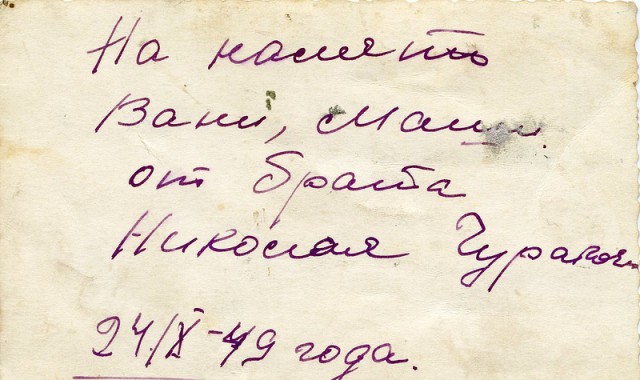 На память
Вани, Маши
от брата
Николая
24/X-49 года.